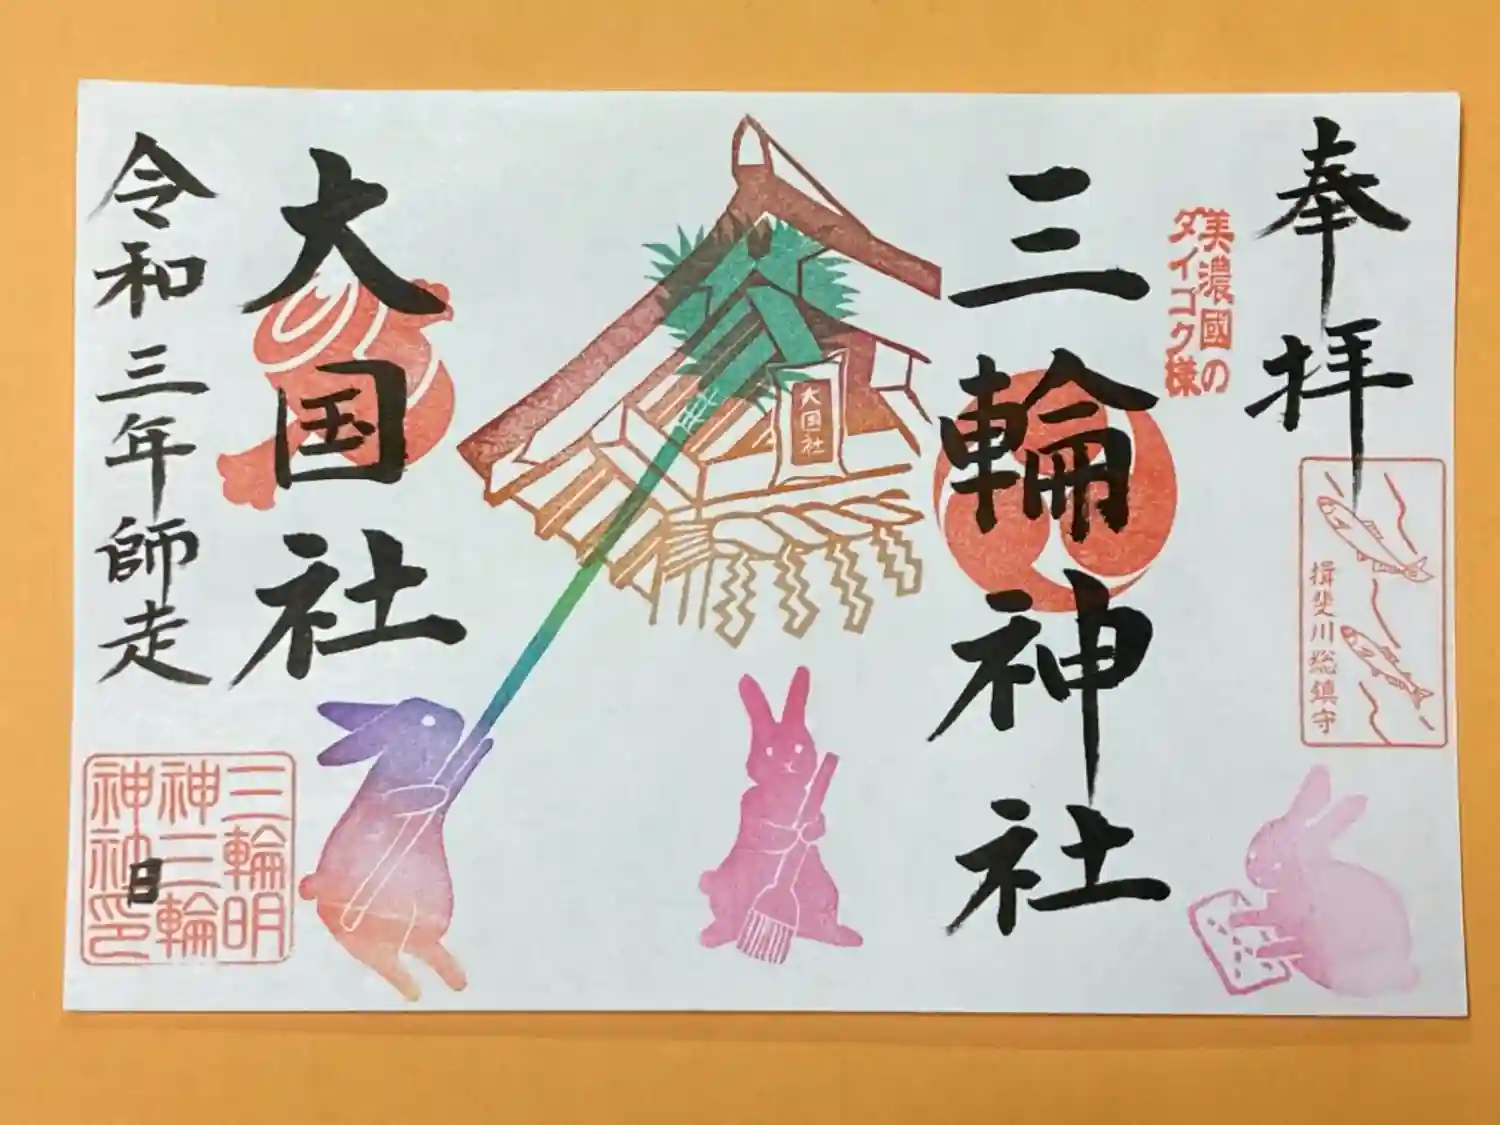 奉拝
揖斐川総鎮守
美濃國の
ダイコク様
三輪神社
大国社
大国社
令和三年師走
日
三輪明
神三輪
神社印